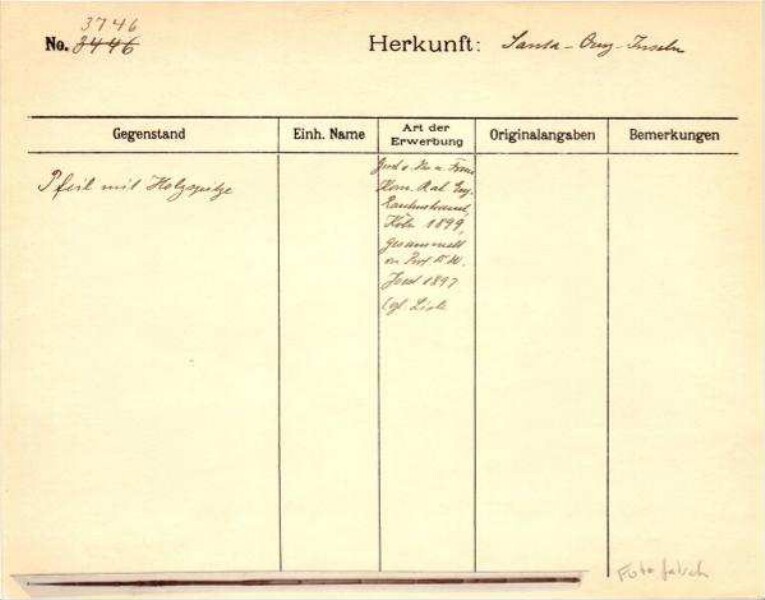 3746
No. 3446 Herkunft: Santa-Cruz-Inseln
Gegenstand Einh. Name Art der Erwerbung Originalangaben Bemerkungen
Pfeil mit Holzspitze
Kom. Rat Eug.
Rautenstrauch,
Köln 1899,
gesammelt
Prof. W.
Joest 1897
Cgl. Liste
Foto falsch